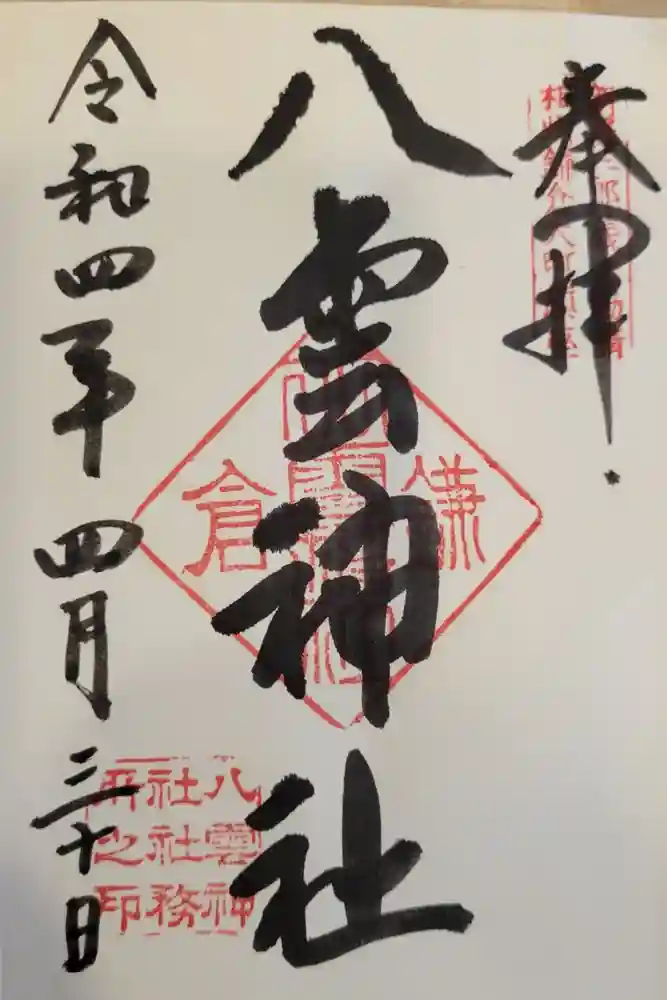 奉拝
八雲神社
鎌倉
八雲神
社社務
所之印
令和四年四月三十日